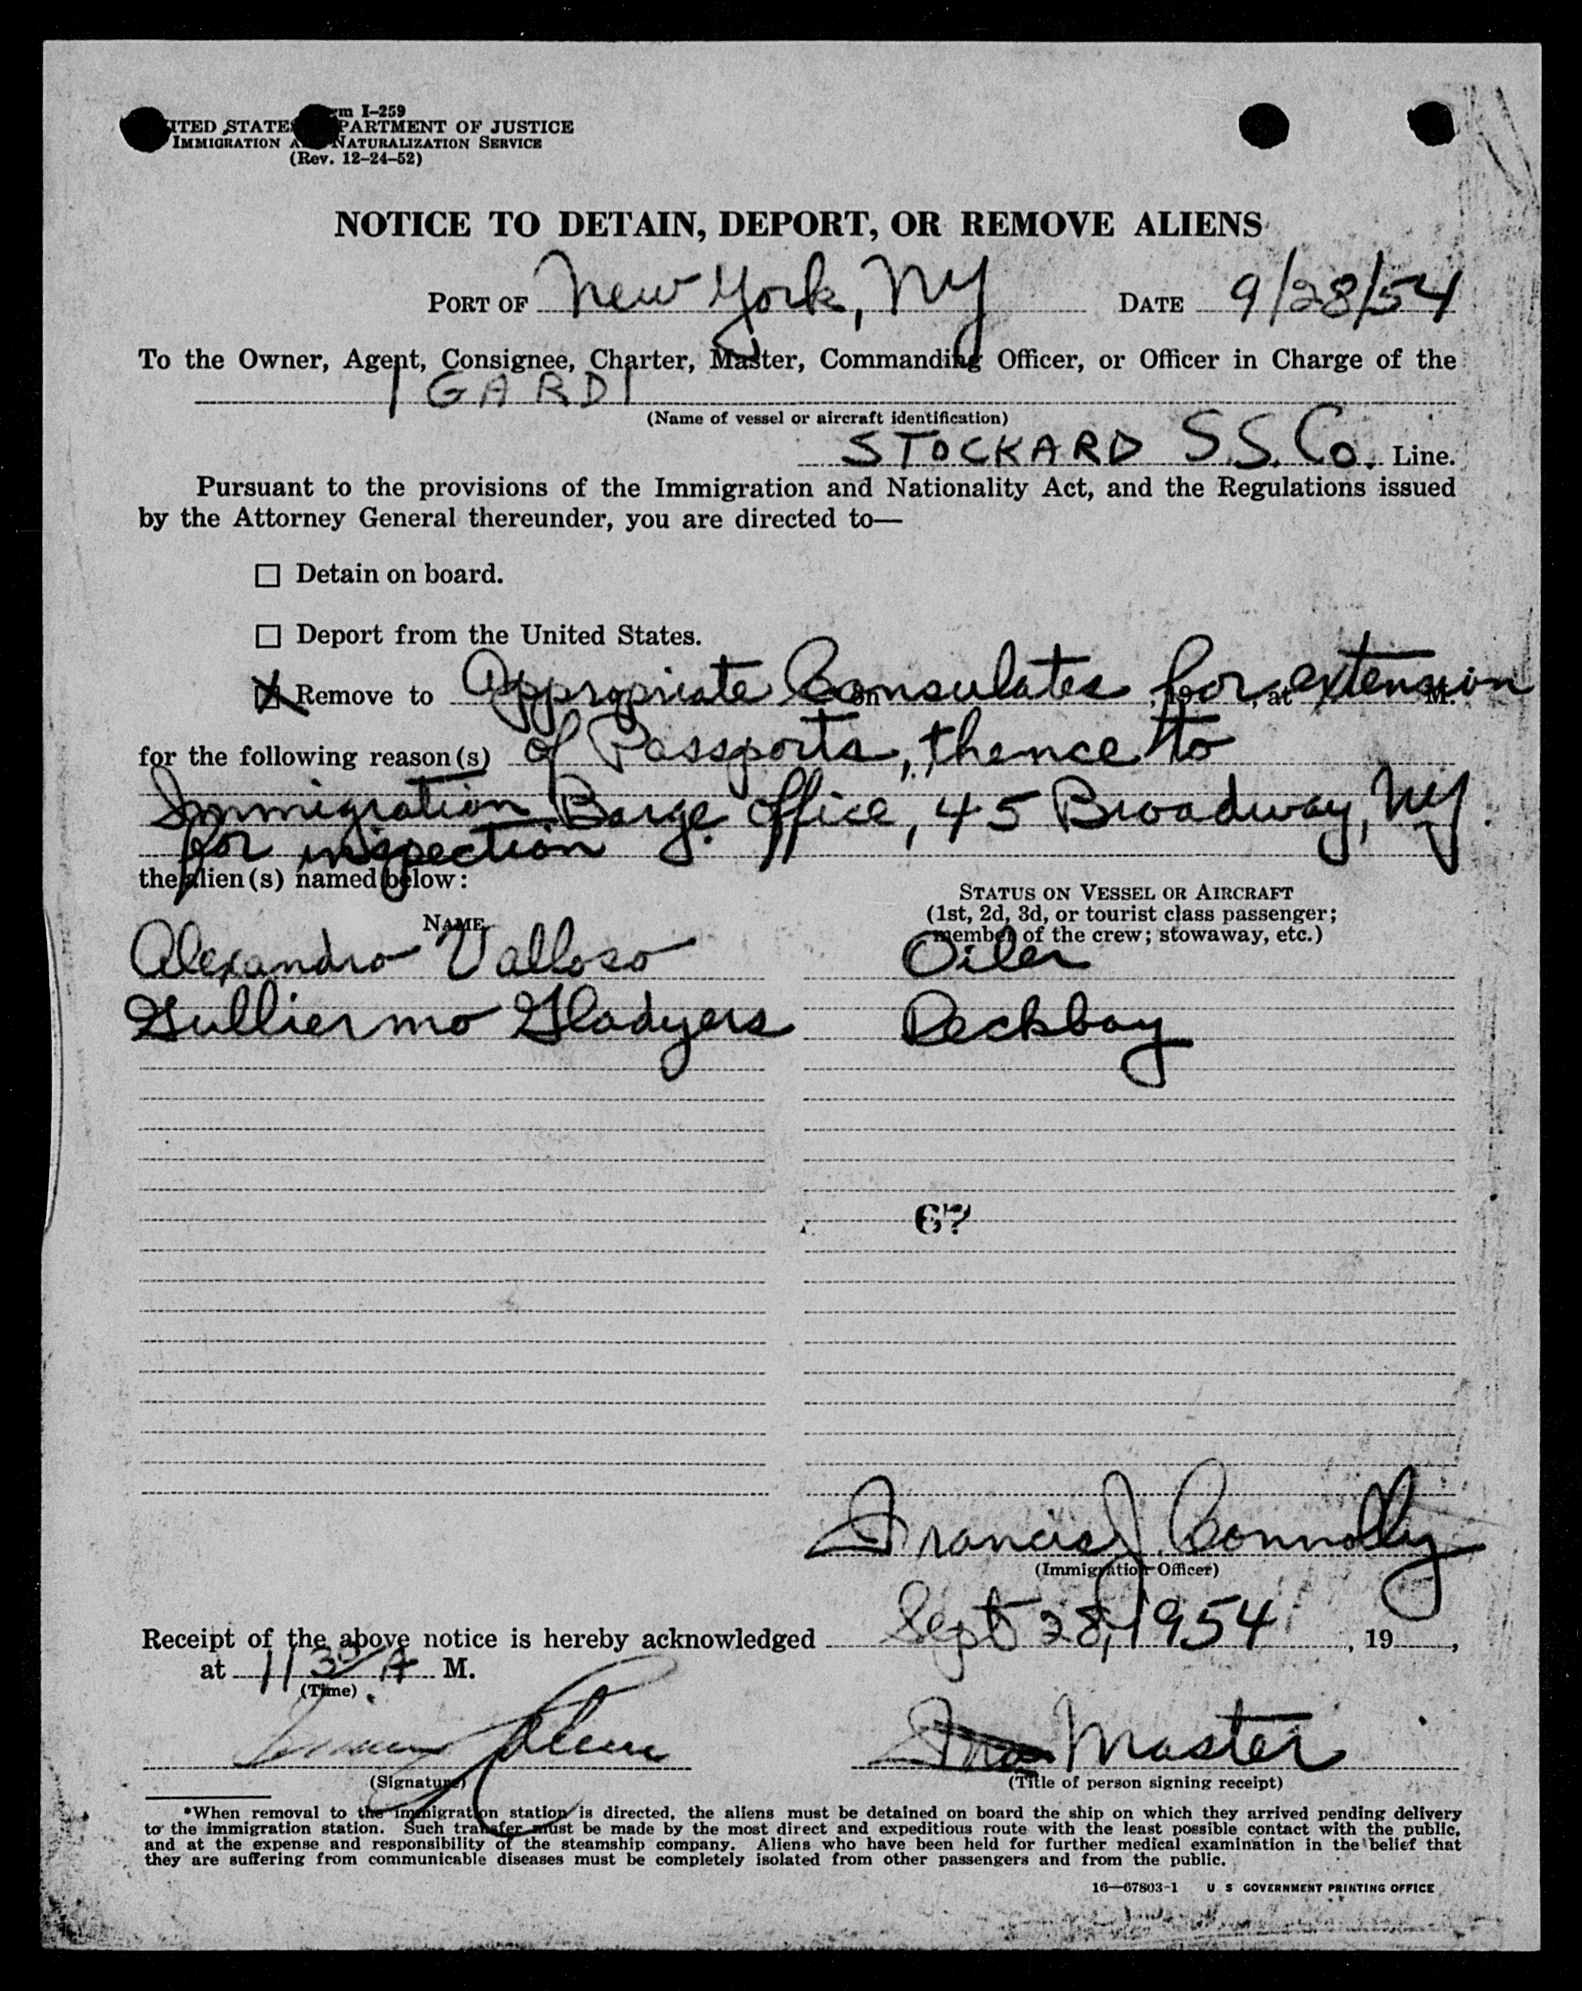 Form I-259
UNITED STATES DEPARTMENT OF JUSTICE
IMMIGRATION AND NATURALIZATION SERVICE
(Rev. 12-24-52)
NOTICE TO DETAIN, DEPORT, OR REMOVE ALIENS
PORT OF New York, NY DATE 9/28/54
To the Owner, Agent, Consignee, Charter, Master, Commanding Officer, or Officer in Charge of the
IGARDI
(Name of vessel or aircraft identification)
STOCKARD S.S. Co. Line.
Pursuant to the provisions of the Immigration and Nationality Act, and the Regulations issued
by the Attorney General thereunder, you are directed to—
☐ Detain on board.
☐ Deport from the United States.
☒ Remove to Appropriate Consulates for extension on , 19 , at M.
for the following reason(s) of Passports, thence to
Immigration Barge Office, 45 Broadway, NY.
for inspection
the alien(s) named below:
NAME
STATUS ON VESSEL OR AIRCRAFT
(1st, 2d, 3d, or tourist class passenger;
member of the crew; stowaway, etc.)
Alexandro Valloso Oiler
Gulliermo Gladyers Deckboy
67
Francis J. Connolly
(Immigration Officer)
Receipt of the above notice is hereby acknowledged Sept 28, 1954 , 19 ,
at 11 30 A M.
(Time)
Master
(Signature) (Title of person signing receipt)
*When removal to the immigration station is directed, the aliens must be detained on board the ship on which they arrived pending delivery
to the immigration station. Such transfer must be made by the most direct and expeditious route with the least possible contact with the public,
and at the expense and responsibility of the steamship company. Aliens who have been held for further medical examination in the belief that
they are suffering from communicable diseases must be completely isolated from other passengers and from the public.
16—67803-1 U S GOVERNMENT PRINTING OFFICE